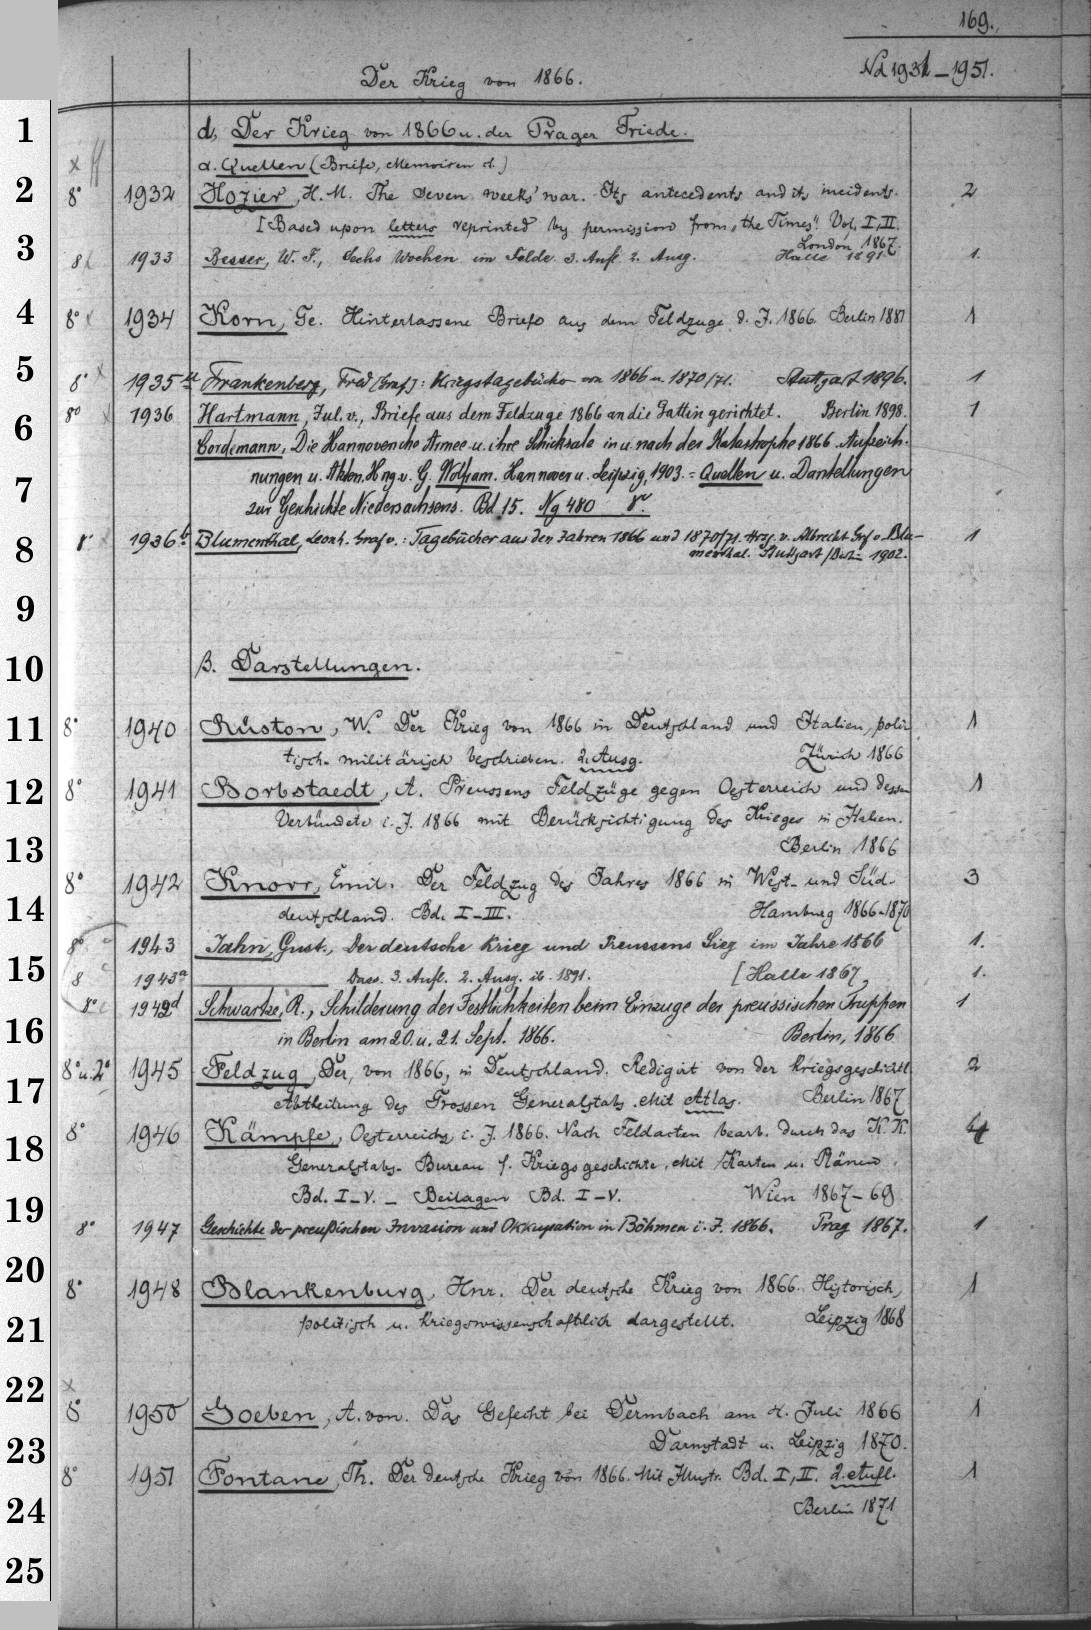 169.
Der Krieg von 1866. Nd 1931–1951.
1 d, Der Krieg von 1866 u. der Prager Friede.
α. Quellen (Briefe, Memoiren d.)
2 8° 1932 Hozier, H. M. The seven weeks' war. Its antecedents and its incidents. 2
[Based upon letters reprinted by permission from „the Times". Vol. I, II.
London 1867.
3 8 1933 Besser, W. F., Sechs Wochen im Felde. 3. Aufl. 2. Ausg. Halle 1891. 1.
4 8° 1934 Korn, Ge. Hinterlassene Briefe aus dem Feldzuge d. J. 1866. Berlin 1887 1
5 8° 1935 Frankenberg, Fred (Graf): Kriegstagebücher von 1866 u. 1870/71. Stuttgart 1896. 1
6 8° 1936 Hartmann, Jul. v., Briefe aus dem Feldzuge 1866 an die Gattin gerichtet. Berlin 1898. 1
Cordemann, Die Hannoversche Armee u. ihre Schicksale in u. nach der Katastrophe 1866. Aufzeich-
7 nungen u. Akten. Hrsg. v. G. Wolfram. Hannover u. Leipzig, 1903. = Quellen u. Darstellungen
zur Geschichte Niedersachsens. Bd 15. Ng 480 8°
8 8° 1936b Blumenthal, Leonh. Graf v.: Tagebücher aus den Jahren 1866 und 1870/71. Hrsg. v. Albrecht Graf v. Blu- 1
menthal. Stuttgart / Berlin 1902.
9
10 β. Darstellungen.
11 8° 1940 Rüstow, W. Der Krieg von 1866 in Deutschland und Italien, poli- 1
tisch-militärisch beschrieben. 2. Ausg. Zürich 1866
12 8° 1941 Borbstaedt, A. Preussens Feldzüge gegen Oesterreich und dessen 1
Verbündete i. J. 1866 mit Berücksichtigung des Krieges in Italien.
13 Berlin 1866
8° 1942 Knorr, Emil. Der Feldzug des Jahres 1866 in West- und Süd- 3
14 deutschland. Bd. I–III. Hamburg 1866–1870
8° 1943 Jahn, Gust., Der deutsche Krieg und Preussens Sieg im Jahre 1866 1.
15 8 1943a Dass. 3. Aufl. 2. Ausg. ib. 1891. [Halle 1867 1.
8° 1942d Schwartze, R., Schilderung der Festlichkeiten beim Einzuge der preussischen Truppen 1
16 in Berlin am 20. u. 21. Sept. 1866. Berlin, 1866
8° u. 2° 1945 Feldzug, Der, von 1866, in Deutschland. Redigirt von der kriegsgeschichtl. 2
17 Abtheilung des Grossen Generalstabs. Mit Atlas. Berlin 1867
8° 1946 Kämpfe, Oesterreichs i. J. 1866. Nach Feldacten bearb. durch das K. K. 4
18 Generalstabs-Bureau f. Kriegsgeschichte. Mit Karten u. Plänen.
Bd. I–V. – Beilagen Bd. I–V. Wien 1867–69
19 8° 1947 Geschichte der preußischen Invasion und Okkupation in Böhmen i. J. 1866. Prag 1867. 1
20 8° 1948 Blankenburg, Hnr. Der deutsche Krieg von 1866. Historisch, 1
21 politisch u. kriegswissenschaftlich dargestellt. Leipzig 1868
22 8° 1950 Goeben, A. von. Das Gefecht bei Dermbach am 4. Juli 1866 1
23 Darmstadt u. Leipzig 1870.
8° 1951 Fontane, Th. Der deutsche Krieg von 1866. Mit Illustr. Bd. I, II. 2. Aufl. 1
24 Berlin 1871
25